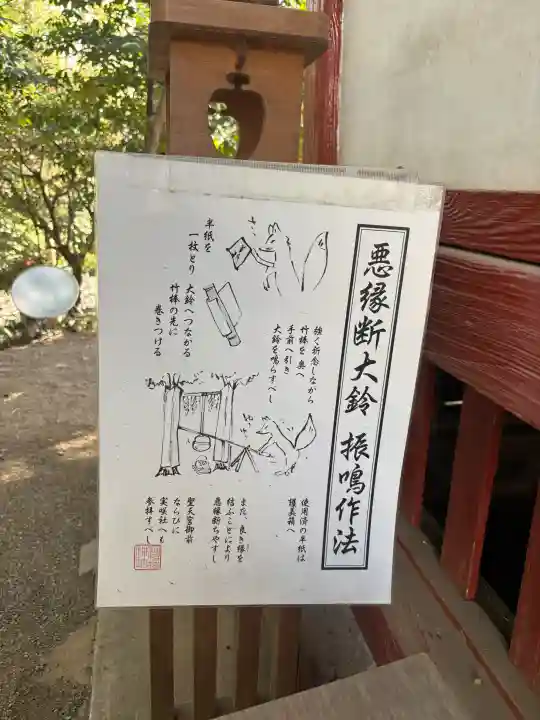 悪縁断大鈴 振鳴作法
半紙を
一枚とり
大鈴へつながる
竹棒の先に
巻きつける
強く祈念しながら
竹棒を奥へ
手前へ引き
大鈴を鳴らすべし
使用済の半紙は
狸美箱へ
また、良き縁を
結ぶことにより
悪縁断ちやすし
聖天宮御前
ならびに
実咲社へも
参拝すべし